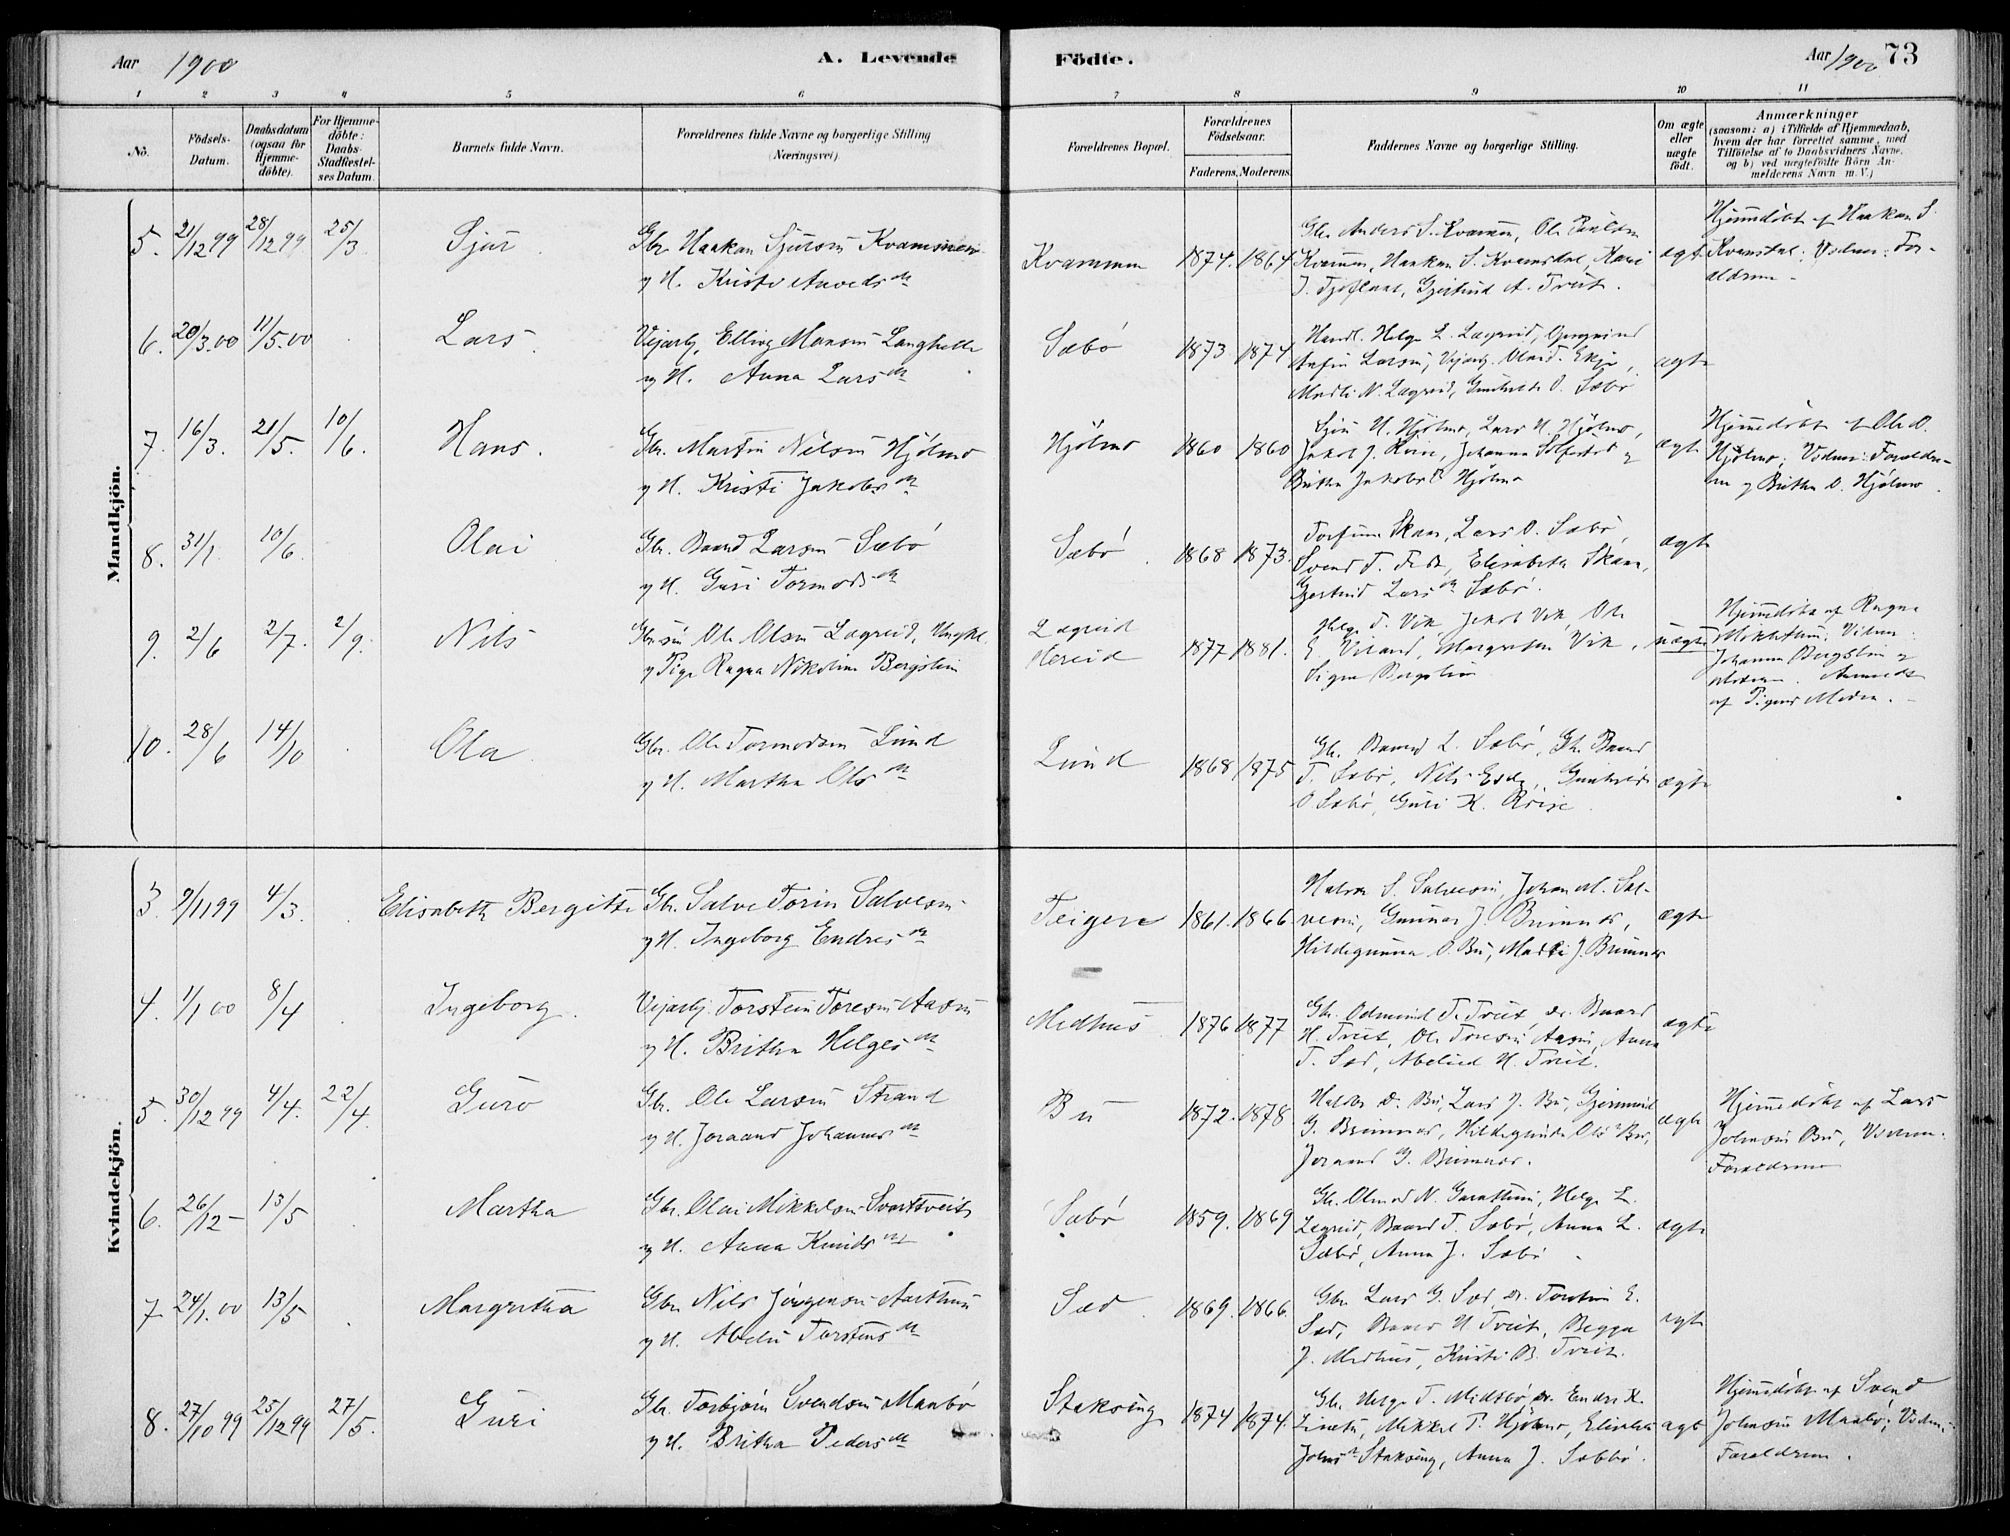 Aar 1900
A. Levende
Födte.
Aar 1900 73
1 2 3 4 5 6 7 8 9 10 11
No.
Födsels-Datum.
Daabsdatum (ogsaa for Hjemme-döbte).
For Hjemme-döbte: Daabs-Stadfæstel-ses Datum.
Barnets fulde Navn.
Forældrenes fulde Navne og borgerlige Stilling (Næringsvei).
Forældrenes Bopæl.
Forældrenes Födselsaar.
Faderens. Moderens.
Faddernes Navne og borgerlige Stilling.
Om ægte eller uægte födt.
Anmærkninger
(saasom: a) i Tilfælde af Hjemmedaab, hvem der har forrettet samme, med Tilföielse af to Daabsvidners Navne, og b) ved uægtefödte Börn An-melderens Navn m.V.)
Mandkjön.
5. 21/12 99 28/12 99 25/3. Sjur
Gbr. Haakan Sjursen Kvamsnesn
g H. Kristi Anveds dtr
Kvammen 1874. 1864
Gbr. Anders S. Kvammen, Ole
Kvammen, Haakan S. Kvamsdal,
Gjertrud A. Tveit.
ægte
Hjemmedöbt af Haakan S.
Kvamsdal. Vidner: For-
ældrene
6. 20/3.00 11/5.00 Lars
Vejarb. Elling Mansen Langhelle
g H. Anna Lars dtr
Sæbö 1873 1874
Handl. Helge L. Lægreid,
Larsen, Vejarb.
N. Lægreid, Gunhilde O. Sæbö
ægte
7. 16/3. 21/5. 10/6. Hans.
Gbr. Martin Nilsen Hjölmo
g H. Kristi Jakobs dtr
Hjölmo 1860 1860
H. Hjölmo, Lars H. Hjölmo,
Jakob J. Johanna
Britha Jakobs d Hjölmo
ægte
Hjemmedöbt af Ole O.
Hjölmo; Vidner: Forældre-
ne g Britha O. Hjölmo
8. 31/1. 10/6. Olai
Gbr. Baard Larsen Sæbö
g H. Guri Tormods dtr
Sæbö 1868 1873.
Skaar, Lars O. Sæbö,
Svend T. Elisabeth Skaar,
Gjertrud Lars dtr Sæbö
ægte
9. 2/6 2/7. 2/9. Nils
Gbrsön Ole Olsen Lægreid, Ungkl.
g Pige Ragna Nikoline Bergstein
Lægreid
Hereid 1877 1881.
Helge T. Vik Jakob Vik, Ole
Margretha Vik,
Signe
uægte
Hjemmedöbt af Ragna
Vidner:
Johanna g
Moderen. Anmeldt
af Pigens Moder.
10. 28/6 14/10 Ola
Gbr. Ole Tormodsen Lund
g H. Martha Ols dtr
Lund 1868 1875
Gbr. Baard L. Sæbö, Gbr. Baard
T. Sæbö, Nils Gunhilde
O Sæbö, Guri K.
ægte
Kvindekjön.
3. 9/11 99 4/3. Elisabeth Bergitte
Gbr. Salve Torin Salvesen
g H. Ingeborg Endres dtr
Teigen 1861. 1866
Halvor S. Salvesen, Johan M. Sal-
vesen, Gunnar J. Brimnes,
Hildegunna O. Bu, J. Brimnes
ægte
4. 1/1 00 8/4 Ingeborg.
Vejarb. Torstein Toresen Aasen
g H. Britha Helges dtr
Medhus 1876 1877
Gbr. Odmund T. Tveit, do. Baard
H. Tveit, Ole Toresen Aasen, Anna
T. Sæd, H. Tveit.
ægte
5. 30/12 99 4/4. 22/4. Guro
Gbr. Ole Larsen Strand
g H. Joraand Johannes dtr
Bu 1872. 1878.
D. Bu, Lars J. Bu,
G. Brimnes, Hildegunda Bu,
Joraand G. Brimnes.
ægte
Hjemmedöbt af Lars
Johnsen Bu, Vidner:
Forældrene
6. 26/12 – 13/5 Martha
Gbr. Olai Mikkelsen Svartveit
g H. Anna Knuds dtr
Sæbö 1859. 1869
Gbr. N. Garatun, Helge L.
Legreid, Baard T. Sæbö, Anna L.
Sæbö, Anna J. Sæbö.
ægte
7 24/1.00 13/5 Margretha
Gbr. Nils Jörgensen
g H. Torsteins dtr
Sæd 1869. 1866.
Gbr. Lars G. Sæd, do. Torstein E.
Sæd, Baard H Tveit,
J. Medhus, Kristi B. Tveit.
ægte
8. 27/10 99 25/12 99 27/5. Guri
Gbr. Torbjörn Svendsen Maabö
g H. Britha Peders dtr
Staksing 1874 1874.
Gbr. Helge T. Midtbö, do. Endre K.
Mikkel P. Hjölmo,
Staksing, Anna J. Sæbö.
ægte
Hjemmedöbt af Svend
Johnsen Maabö; Vidner:
Forældrene.